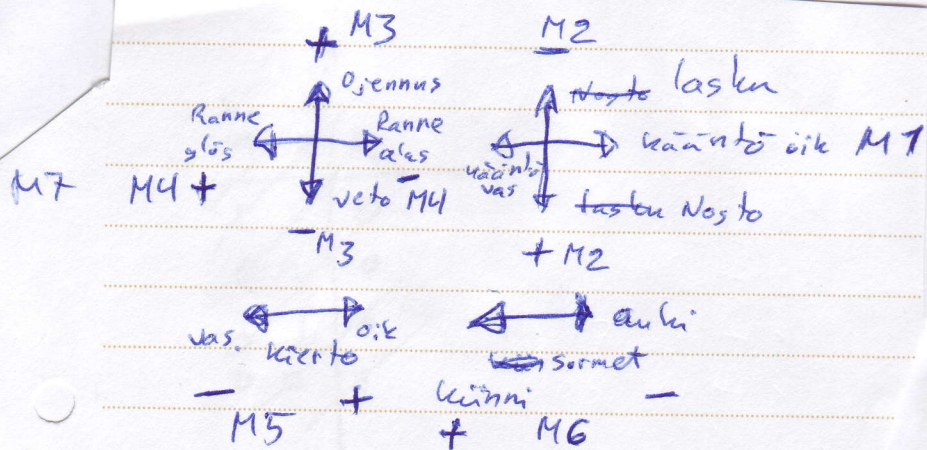 + M3 M2 –
Ojennus Nosto lasku
Ranne ylös Ranne alas kääntö vas kääntö oik M1
M7 M4 + veto – M4 lasku Nosto
– M3 + M2
vas. oik auki
kierto sormet
– + kiinni –
M5 + M6